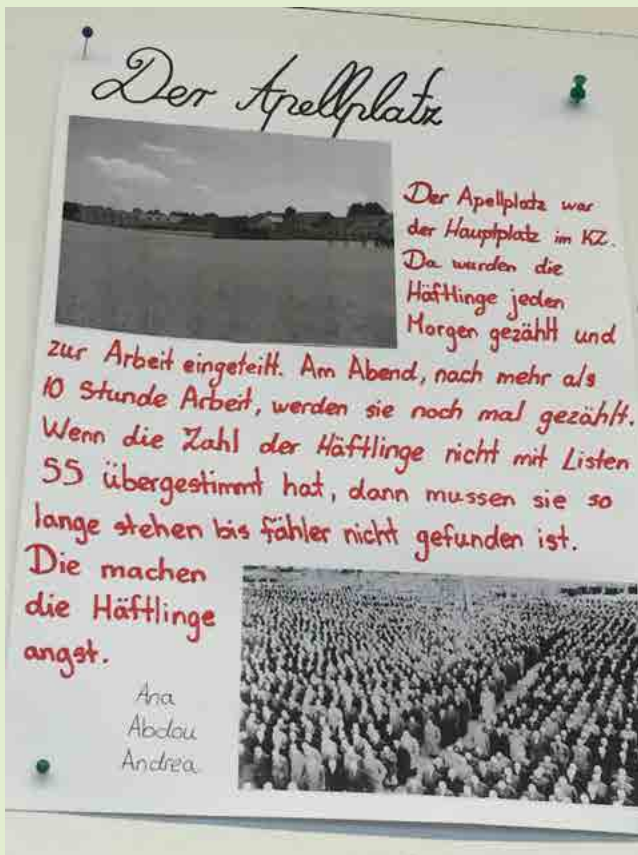 Der Apellplatz
Der Apellplatz war
der Hauptplatz im KZ.
Da wurden die
Häftlinge jeden
Morgen gezählt und
zur Arbeit eingeteilt. Am Abend, nach mehr als
10 Stunde Arbeit, werden sie noch mal gezählt.
Wenn die Zahl der Häftlinge nicht mit Listen
SS übergestimmt hat, dann mussen sie so
lange stehen bis fähler nicht gefunden ist.
Die machen
die Häftlinge
angst.
Ana
Abdou
Andrea